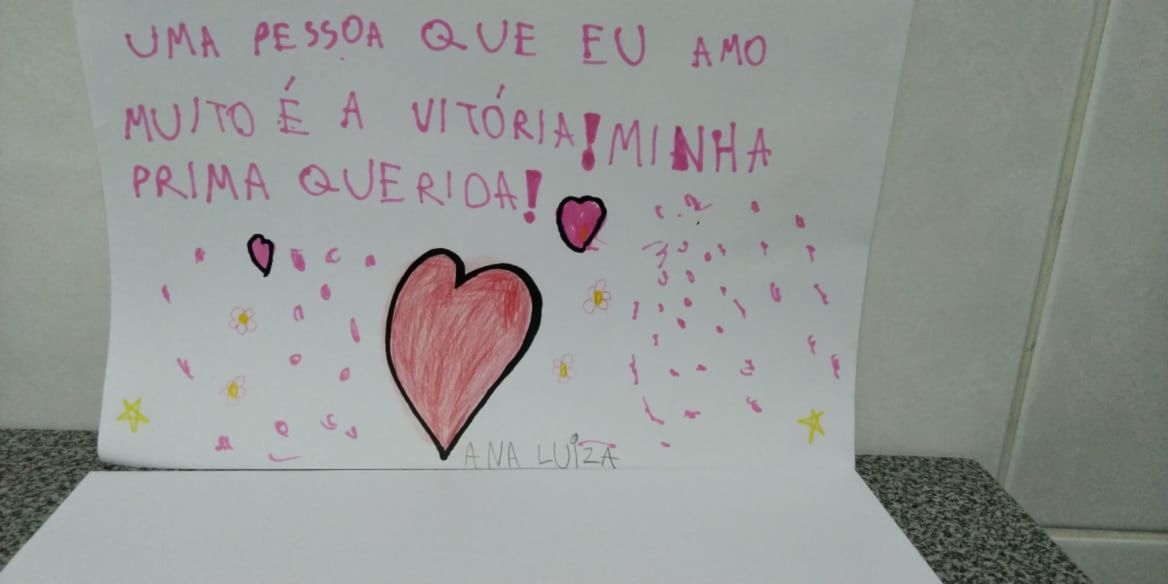 UMA PESSOA QUE EU AMO
MUITO É A VITÓRIA! MINHA
PRIMA QUERIDA!
ANA LUIZA